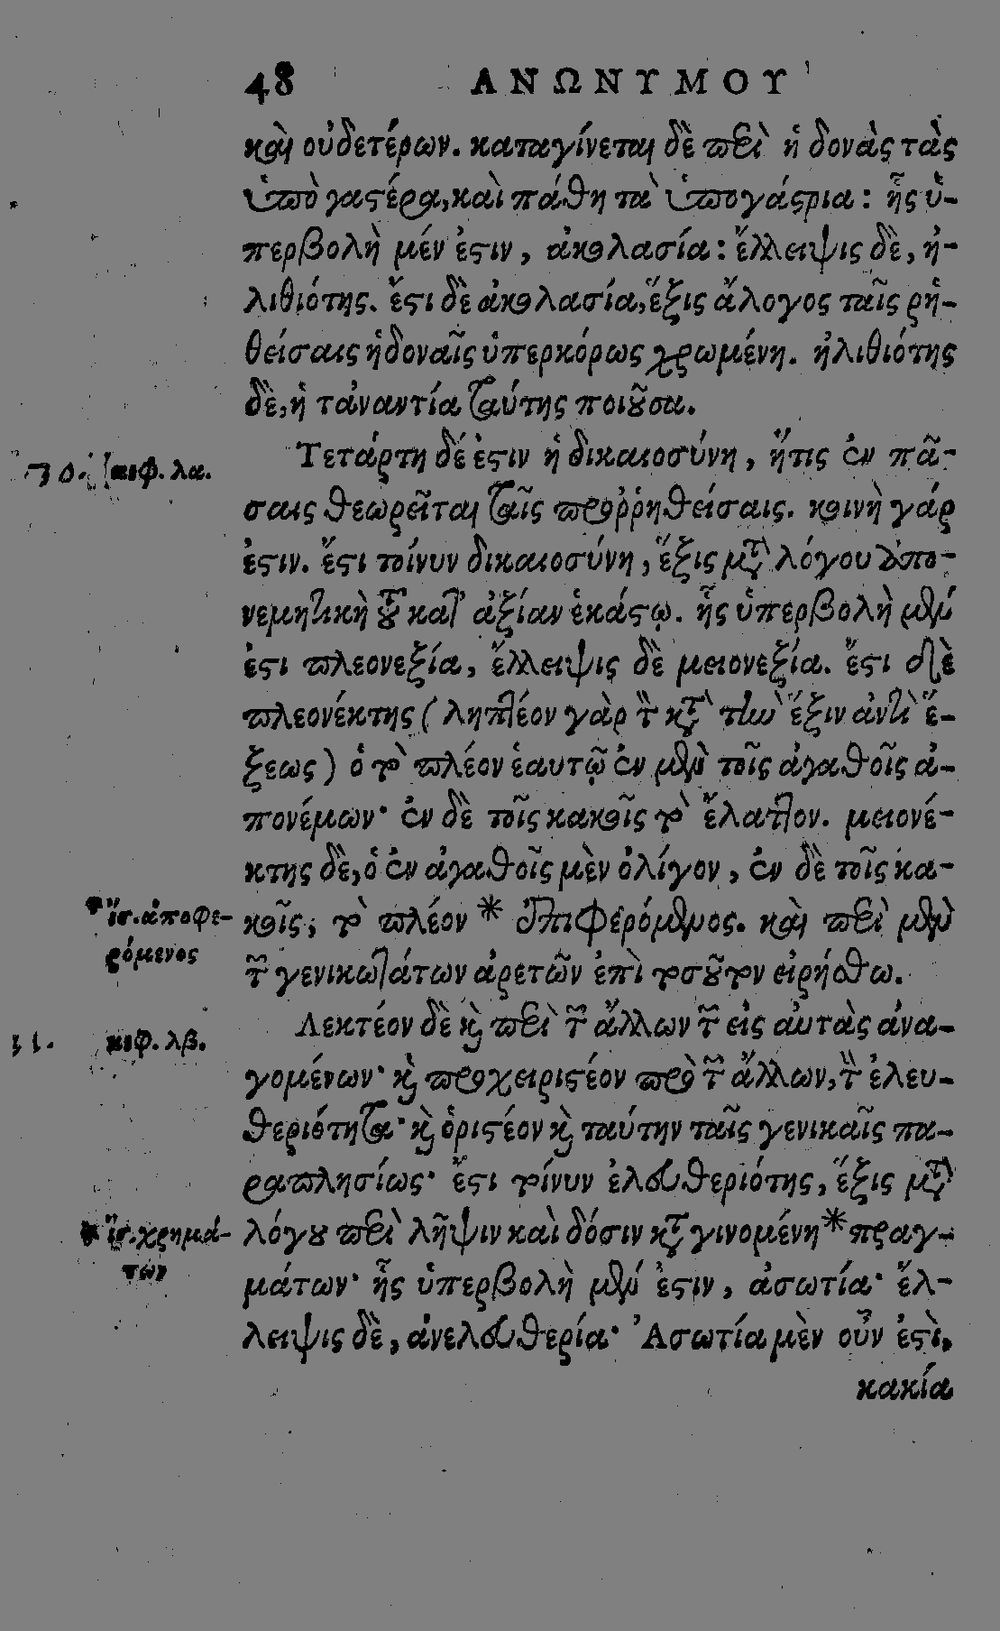 48 ΑΝΩΝΥΜΟΥ
καὶ οὐδετέρων. καταγίνεται δὲ περὶ ἡδονὰς τὰς
ὑπὸ γαστέρα, καὶ πάθη τὰ ὑπογάστρια : ἧς ὑ-
περβολὴ μέν ἐστιν, ἀκολασία : ἔλλειψις δὲ, ἠ-
λιθιότης. ἔστι δὲ ἀκολασία, ἕξις ἄλογος ταῖς ῥη-
θείσαις ἡδοναῖς ὑπερκόρως χρωμένη. ἠλιθιότης
δὲ, ἡ τἀναντία ταύτης ποιοῦσα.
30. κεφ. λα. Τετάρτη δέ ἐστιν ἡ δικαιοσύνη, ἥτις ἐν πά-
σαις θεωρεῖται ταῖς προῤῥηθείσαις. κοινὴ γάρ
ἐστιν. ἔστι τοίνυν δικαιοσύνη, ἕξις μετὰ λόγου ἀπο-
νεμητικὴ τοῦ κατ' ἀξίαν ἑκάστῳ. ἧς ὑπερβολὴ μέν
ἐστι πλεονεξία, ἔλλειψις δὲ μειονεξία. ἔστι δὲ
πλεονέκτης (ληπτέον γὰρ τὸν κατὰ τὴν ἕξιν ἀντὶ ἕ-
ξεως) ὁ τὸ πλέον ἑαυτῷ ἐν μὲν τοῖς ἀγαθοῖς ἀ-
πονέμων· ἐν δὲ τοῖς κακοῖς τὸ ἔλαττον. μειονέ-
κτης δὲ, ὁ ἐν ἀγαθοῖς μὲν ὀλίγον, ἐν δὲ τοῖς κα-
* ἴσ. ἀποφε- κοῖς, τὸ πλέον * ἐπιφερόμενος. καὶ περὶ μὲν
ρόμενος τῶν γενικωτάτων ἀρετῶν ἐπὶ τοσοῦτον εἰρήσθω.
31. κεφ. λβ. Λεκτέον δὲ καὶ περὶ τῶν ἄλλων τῶν εἰς αὐτὰς ἀνα-
γομένων· καὶ προχειριστέον πρὸ τῶν ἄλλων, τὴν ἐλευ-
θεριότητα· καὶ ὁριστέον καὶ ταύτην ταῖς γενικαῖς πα-
ραπλησίως· ἔστι τοίνυν ἐλευθεριότης, ἕξις μετὰ
* ἴσ. χρημά- λόγου περὶ λῆψιν καὶ δόσιν κατὰ γινομένη * πραγ-
των μάτων· ἧς ὑπερβολὴ μέν ἐστιν, ἀσωτία· ἔλ-
λειψις δὲ, ἀνελευθερία· Ἀσωτία μὲν οὖν ἐστὶ,
κακία